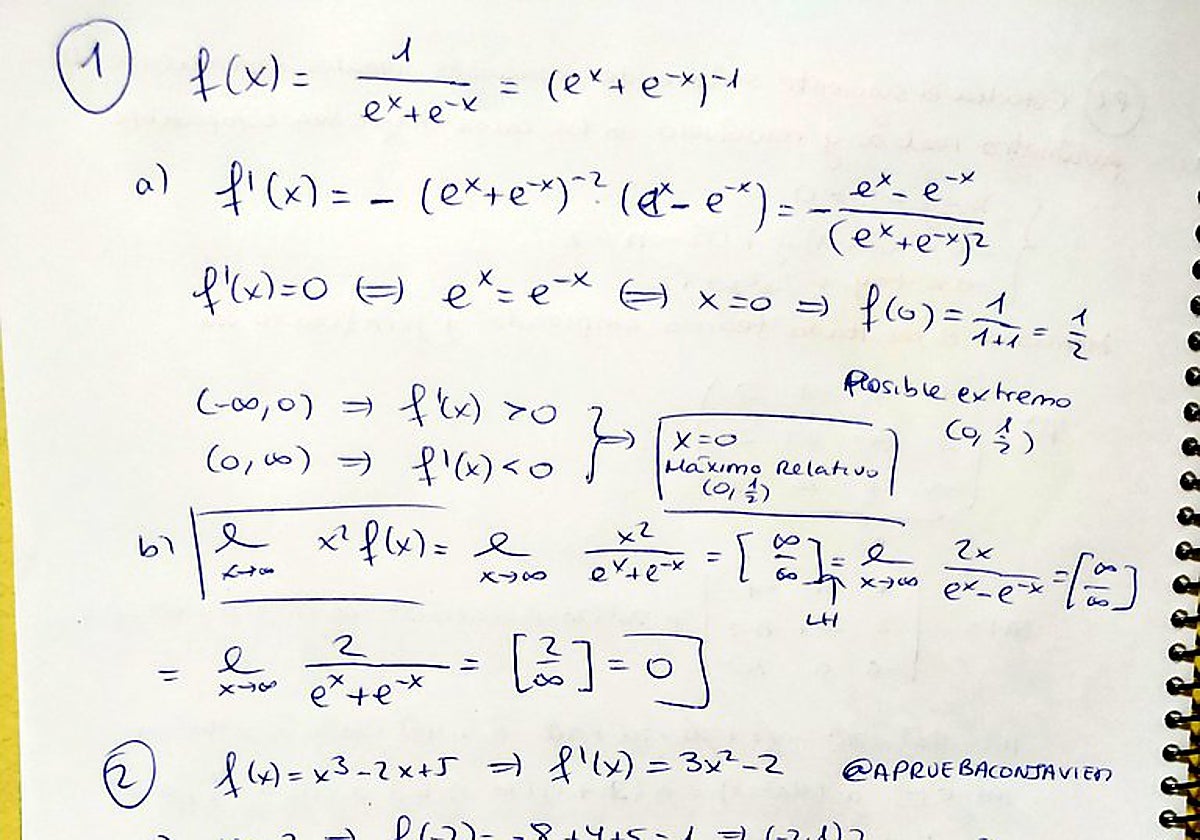 1 f(x) = 1/(eˣ+e⁻ˣ) = (eˣ+e⁻ˣ)⁻¹
a) f'(x) = - (eˣ+e⁻ˣ)⁻² · (eˣ - e⁻ˣ) = - (eˣ - e⁻ˣ)/(eˣ+e⁻ˣ)²
f'(x)=0 ⟺ eˣ = e⁻ˣ ⟺ x=0 ⇒ f(0) = 1/(1+1) = 1/2
Posible extremo
(0, 1/2)
(-∞,0) ⇒ f'(x) >0
(0,∞) ⇒ f'(x) <0 } ⇒
x=0
Máximo Relativo
(0, 1/2)
b) l x→∞ x² f(x) = l x→∞ x²/(eˣ+e⁻ˣ) = [∞/∞] = l x→∞ 2x/(eˣ-e⁻ˣ) = [∞/∞]
↑
LH
= l x→∞ 2/(eˣ+e⁻ˣ) = [2/∞] = 0
2 f(x) = x³-2x+5 ⇒ f'(x) = 3x²-2 @APRUEBACONJAVIER